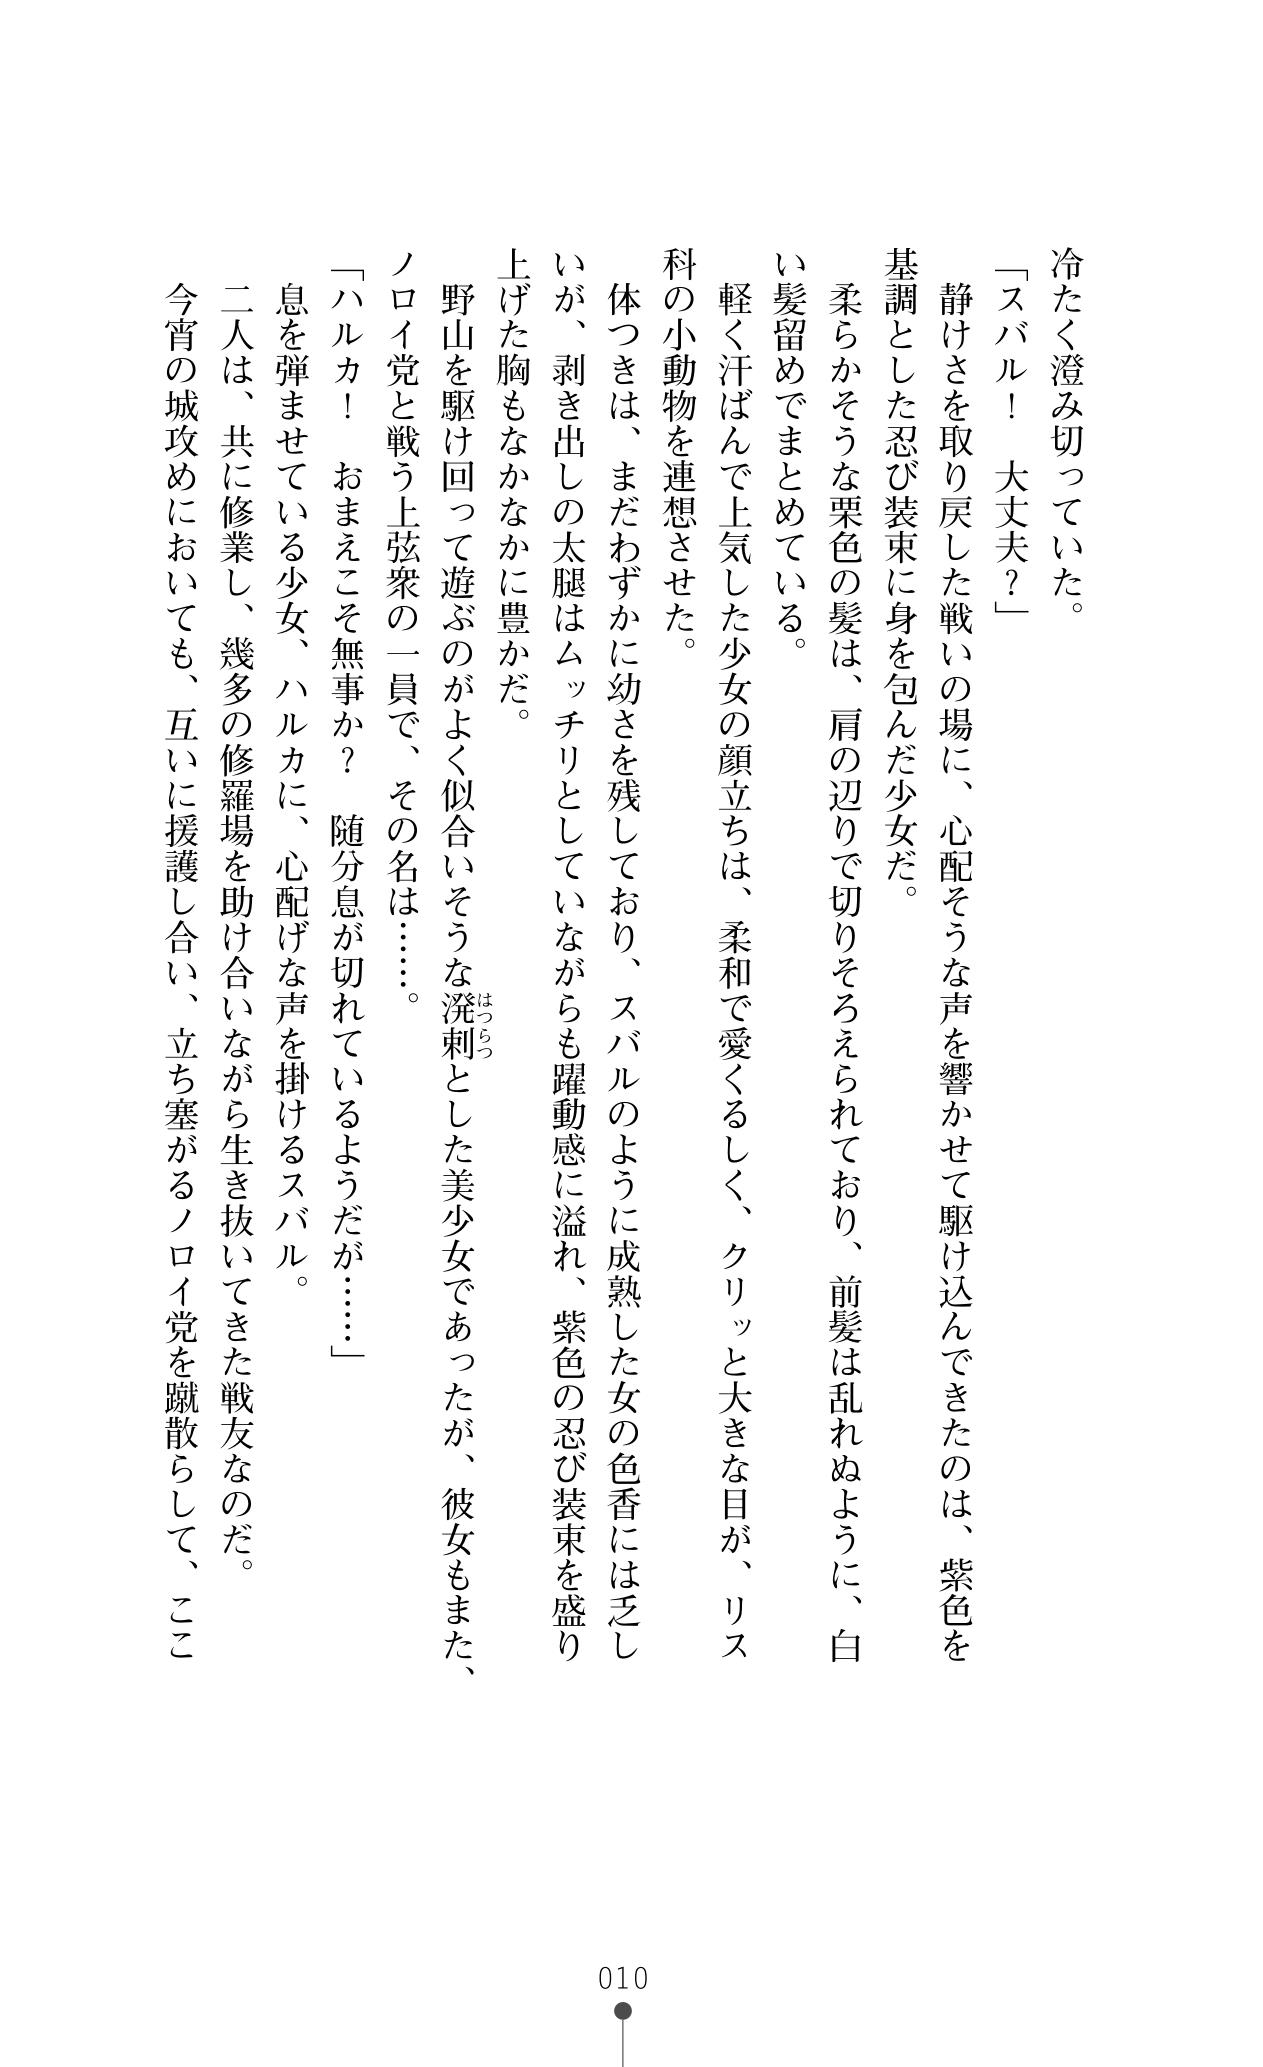 冷たく澄み切っていた。
「スバル！　大丈夫？」
　静けさを取り戻した戦いの場に、心配そうな声を響かせて駆け込んできたのは、紫色を
基調とした忍び装束に身を包んだ少女だ。
　柔らかそうな栗色の髪は、肩の辺りで切りそろえられており、前髪は乱れぬように、白
い髪留めでまとめている。
　軽く汗ばんで上気した少女の顔立ちは、柔和で愛くるしく、クリッと大きな目が、リス
科の小動物を連想させた。
　体つきは、まだわずかに幼さを残しており、スバルのように成熟した女の色香には乏し
いが、剥き出しの太腿はムッチリとしていながらも躍動感に溢れ、紫色の忍び装束を盛り
上げた胸もなかなかに豊かだ。
　野山を駆け回って遊ぶのがよく似合いそうな溌剌とした美少女であったが、彼女もまた、
はつらつ
ノロイ党と戦う上弦衆の一員で、その名は……。
「ハルカ！　おまえこそ無事か？　随分息が切れているようだが……」
　息を弾ませている少女、ハルカに、心配げな声を掛けるスバル。
　二人は、共に修業し、幾多の修羅場を助け合いながら生き抜いてきた戦友なのだ。
　今宵の城攻めにおいても、互いに援護し合い、立ち塞がるノロイ党を蹴散らして、ここ
010